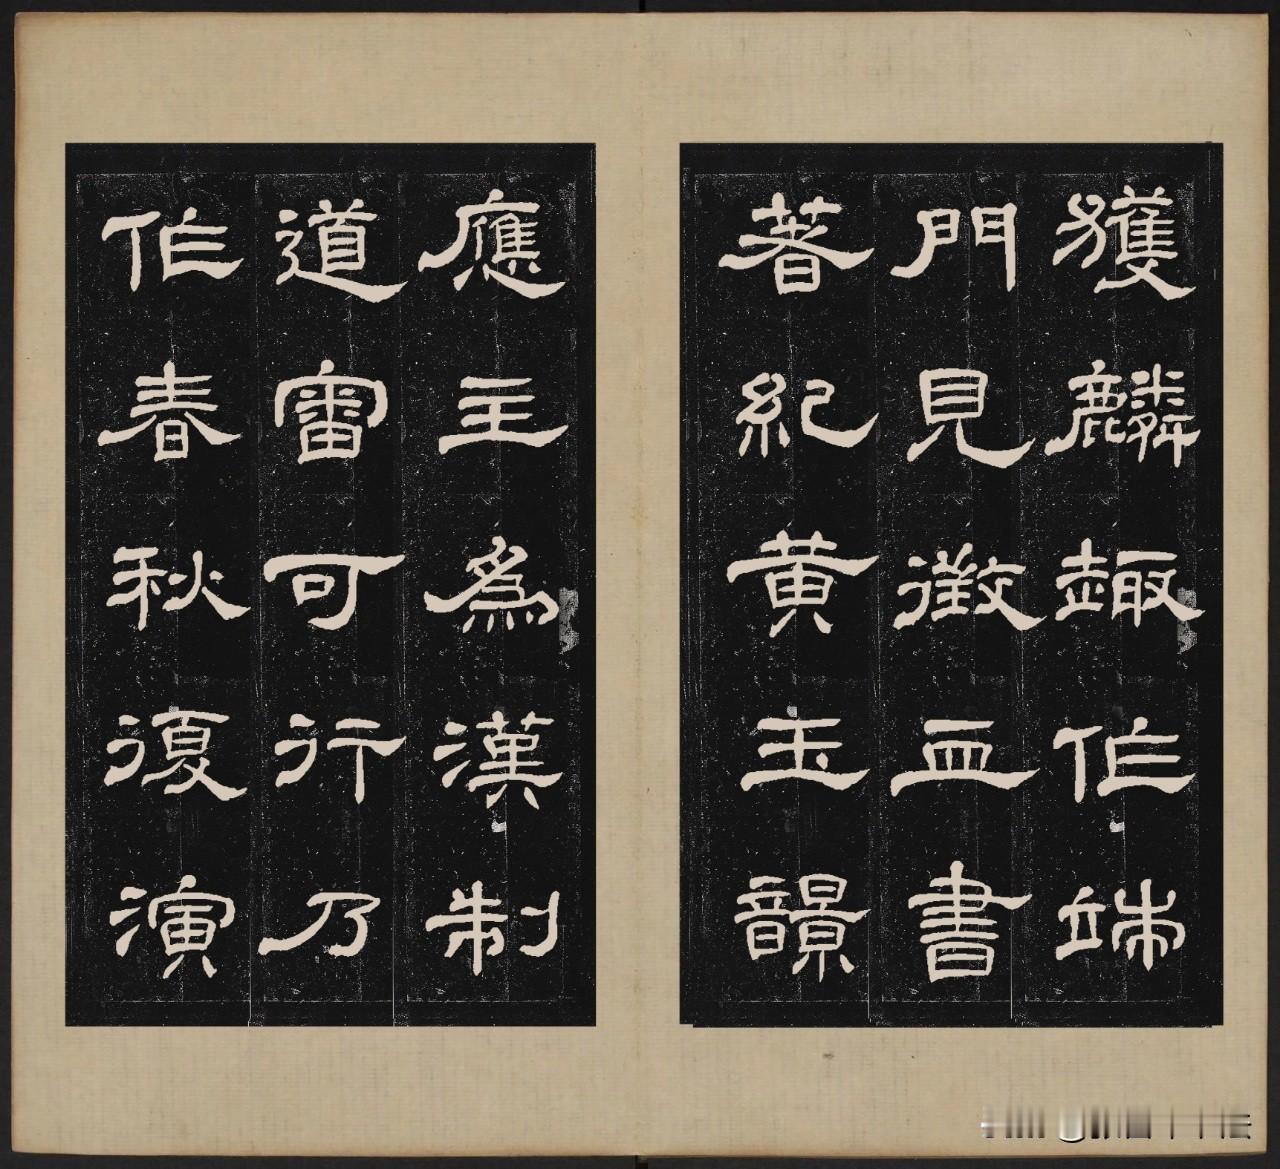 獲麟趣作端
門見徵血書
著紀黃玉𩐿
應主為漢制
道審可行乃
作春秋復演